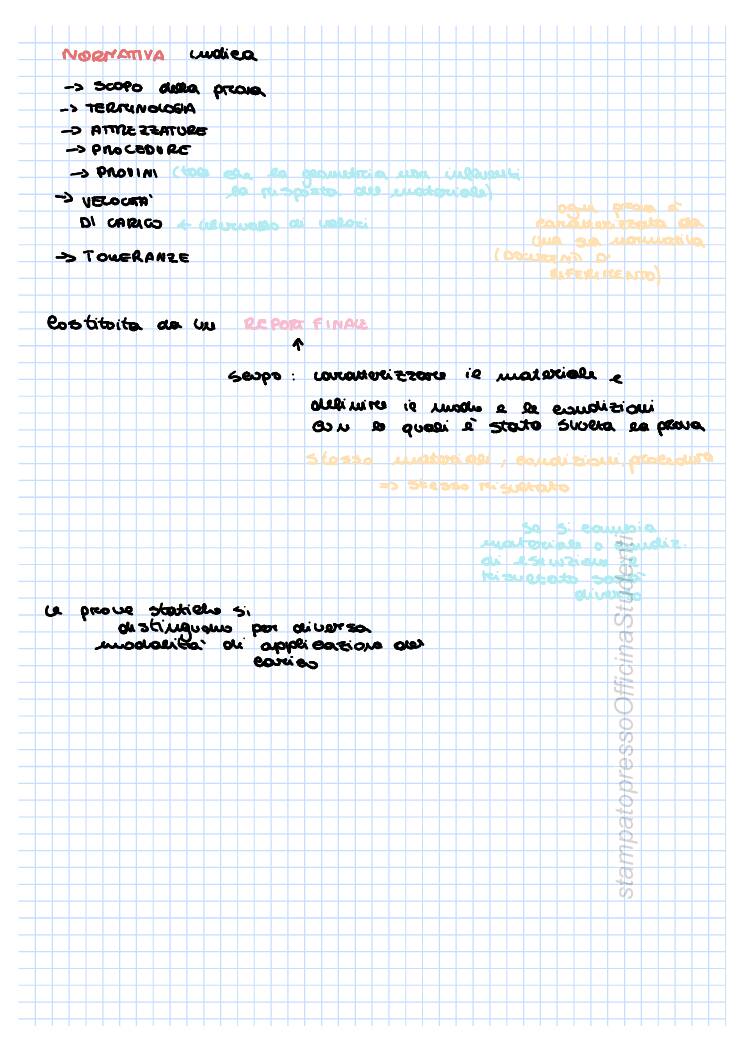 NORMATIVA indica
-> SCOPO della prova
-> TERMINOLOGIA
-> ATTREZZATURE
-> PROCEDURE
-> PROVINI (tali che la geometria non influenzi
la risposta del materiale)
-> VELOCITA'
DI CARICO ← intervallo di valori
-> TOLLERANZE
ogni prova è
caratterizzata da
una sua normativa
(DOCUMENTO DI
RIFERIMENTO)
Costituita da un REPORT FINALE
↑
scopo : caratterizzare il materiale e
definire il modo e le condizioni
con le quali è stata svolta la prova
stesso materiale, condizioni, procedura
=> stesso risultato
se si cambia
materiale o condiz.
di esecuzione il
risultato sarà
diverso
Le prove statiche si
distinguono per diversa
modalità di applicazione del
carico
stampatopressoOfficinaStudenti